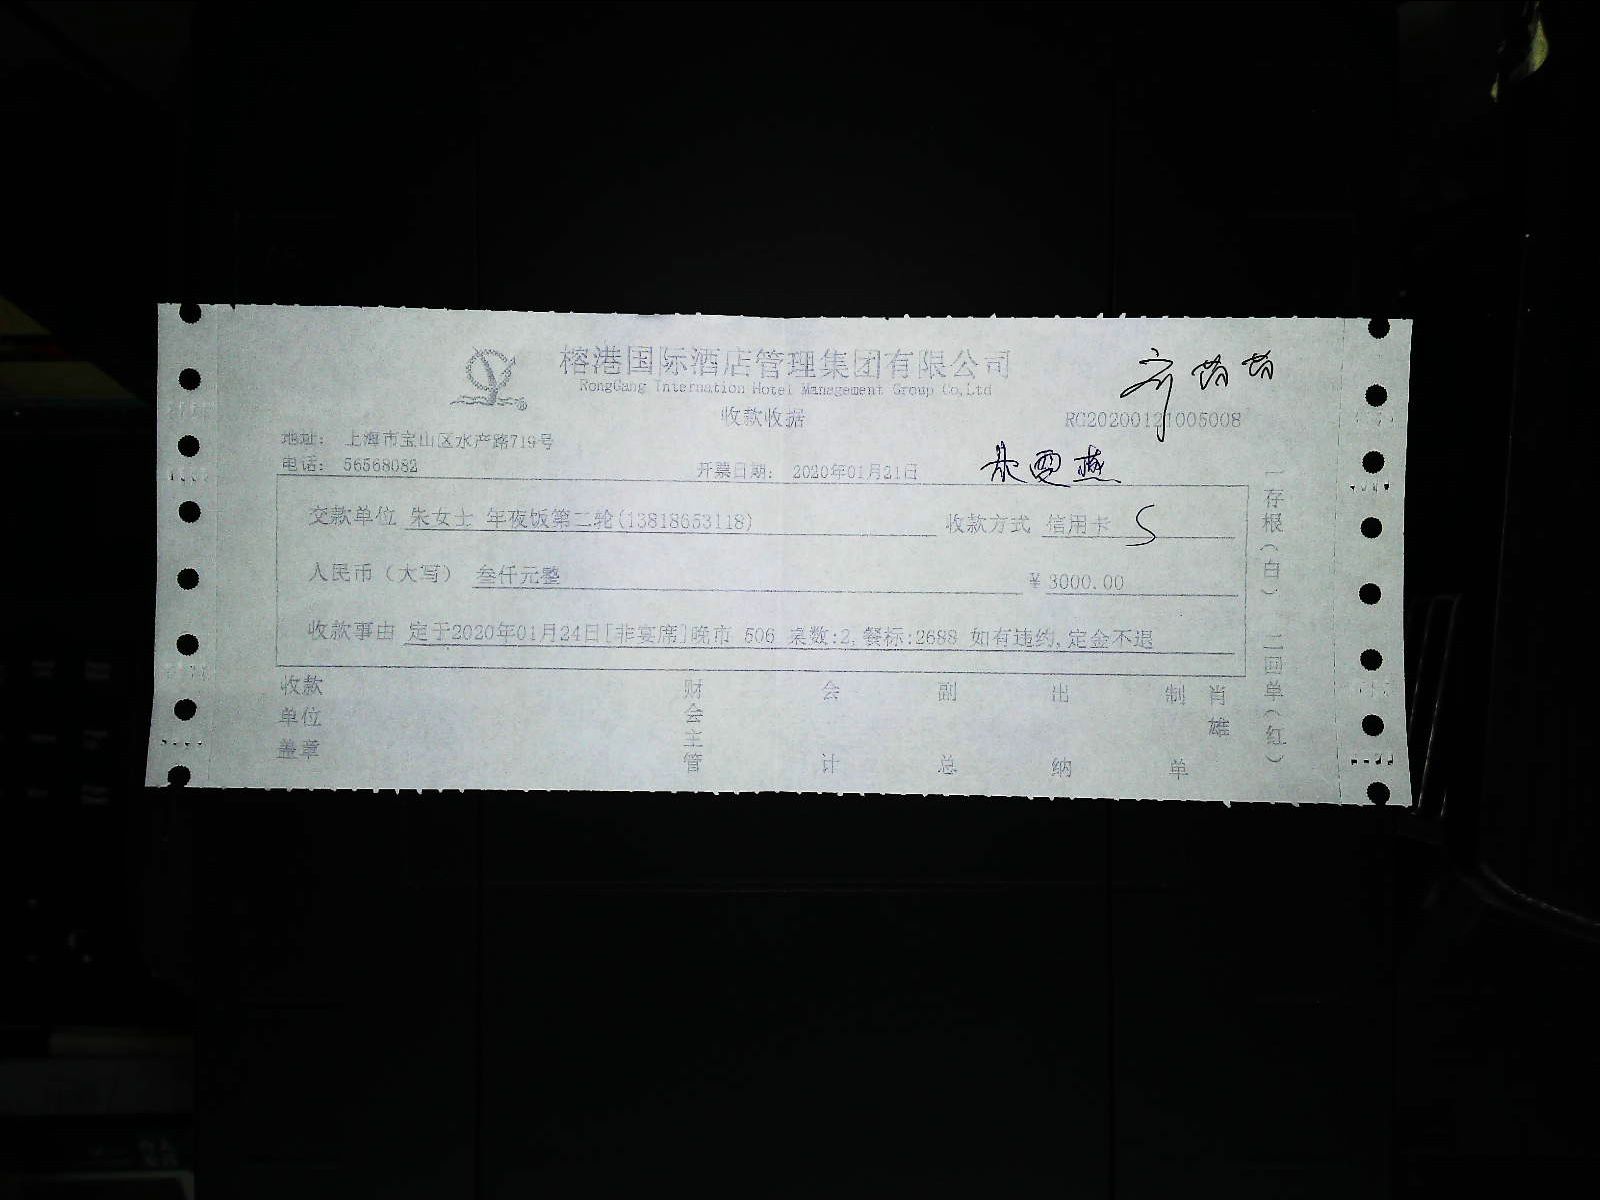 榕港国际酒店管理集团有限公司
RongGang Internation Hotel Management Group Co,Ltd
收款收据
RG20200121005008
地址： 上海市宝山区水产路719号
电话： 56568082
开票日期： 2020年01月21日
交款单位 朱女士 年夜饭第二轮(13818653118)
收款方式 信用卡 S
人民币（大写） 叁仟元整
￥3000.00
收款事由 定于2020年01月24日[非宴席]晚市 506 桌数:2,餐标:2688 如有违约,定金不退
收款单位盖章
财会主管
会计
副总
出纳
制单
肖雄
一存根(白) 二回单(红)